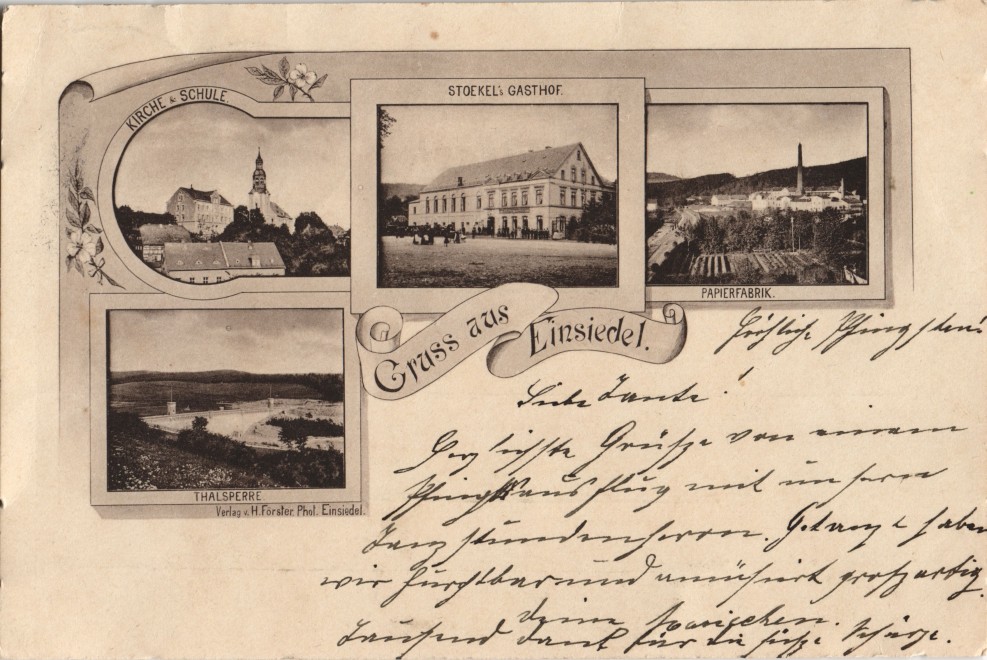 KIRCHE & SCHULE.
STOEKEL'S GASTHOF.
PAPIERFABRIK.
Gruss aus Einsiedel.
THALSPERRE
Verlag v. H. Förster, Phot. Einsiedel.
Fröhliche Pfingsten!
Liebe Tante!
Herzlichste Grüße von einem
Pfingstausflug mit unsern
Tanzstundenherren. Getanzt haben
wir furchtbar und amüsiert großartig.
Deine
Tausend Dank für die süße Schürze.